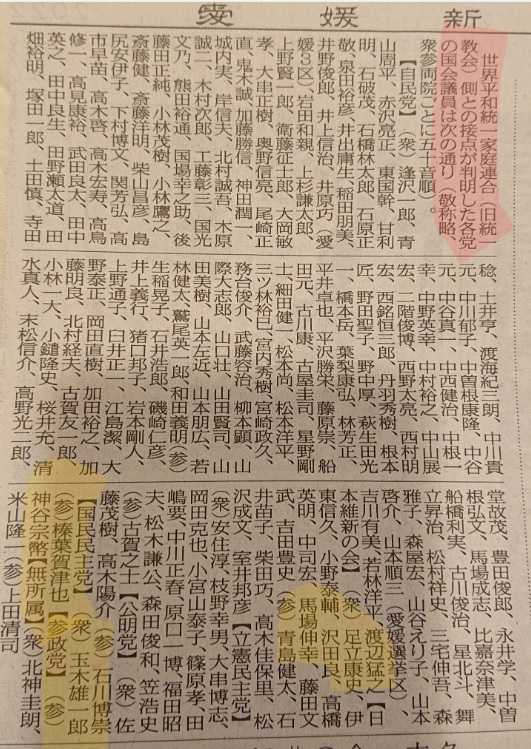 愛媛新
世界平和統一家庭連合（旧統一
教会）側との接点が判明した各党
の国会議員は次の通り（敬称略、
衆参両院ごとに五十音順）。
【自民党】（衆）逢沢一郎、青
山周平、赤沢亮正、東国幹、甘利
明、石破茂、石橋林太郎、石原正
敬、泉田裕彦、井出庸生、稲田朋美、
井野俊郎、井上信治、井原巧（愛
媛3区）、岩田和親、上杉謙太郎、
上野賢一郎、衛藤征士郎、大岡敏
孝、大串正樹、奥野信亮、尾崎正
直、鬼木誠、加藤勝信、神田潤一、
城内実、岸信夫、北村誠吾、木原
誠二、木村次郎、工藤彰三、国光
文乃、熊田裕通、国場幸之助、後
藤田正純、小林茂樹、小林鷹之、
斎藤健、斎藤洋明、柴山昌彦、島
尻安伊子、下村博文、関芳弘、高
市早苗、高木啓、高木宏寿、高鳥
修一、高見康裕、武田良太、田中
英之、田中良生、田野瀬太道、田
畑裕明、塚田一郎、土田慎、寺田
稔、土井亨、渡海紀三朗、中川貴
元、中川郁子、中曽根康隆、中谷
元、中谷真一、中西健治、中根一
幸、中野英幸、中村裕之、中山展
宏、二階俊博、西野太亮、西村明
宏、西銘恒三郎、丹羽秀樹、根本
匠、野田聖子、野中厚、萩生田光
一、橋本岳、葉梨康弘、林芳正、
平井卓也、平沢勝栄、藤原崇、船
田元、古川康、古屋圭司、星野剛
士、細田健一、松本尚、松本洋平、
三ツ林裕巳、宮内秀樹、宮崎政久、
務台俊介、武藤容治、柳本顕、山
際大志郎、山口壮、山田賢司、山
田美樹、山本左近、山本朋広、若
林健太、鷲尾英一郎、和田義明（参）
生稲晃子、石井浩郎、磯崎仁彦、
井上義行、猪口邦子、岩本剛人、
上野通子、臼井正一、江島潔、大
野泰正、岡田直樹、加田裕之、加
藤明良、北村経夫、古賀友一郎、
小林一大、小鑓隆史、桜井充、清
水真人、末松信介、高野光二郎、
堂故茂、豊田俊郎、永井学、中曽
根弘文、馬場成志、比嘉奈津美、
船橋利実、古川俊治、星北斗、舞
立昇治、松村祥史、三宅伸吾、森
雅子、森屋宏、山谷えり子、山本
啓介、山本順三（愛媛選挙区）、
吉川有美、若林洋平、渡辺猛之【日
本維新の会】（衆）足立康史、伊
東信久、小野泰輔、沢田良、高橋
英明、中司宏、馬場伸幸、藤田文
武、吉田豊史（参）青島健太、石
井苗子、柴田巧、高木佳保里、松
沢成文、室井邦彦【立憲民主党】
（衆）安住淳、枝野幸男、大串博志、
岡田克也、小宮山泰子、篠原孝、田
嶋要、中川正春、原口一博、福田昭
夫、松木謙公、森田俊和、笠浩史
（参）古賀之士【公明党】（衆）佐
藤茂樹、高木陽介（参）石川博崇
【国民民主党】（衆）玉木雄一郎
（参）榛葉賀津也【参政党】（参）
神谷宗幣【無所属】（衆）北神圭朗、
米山隆一（参）上田清司